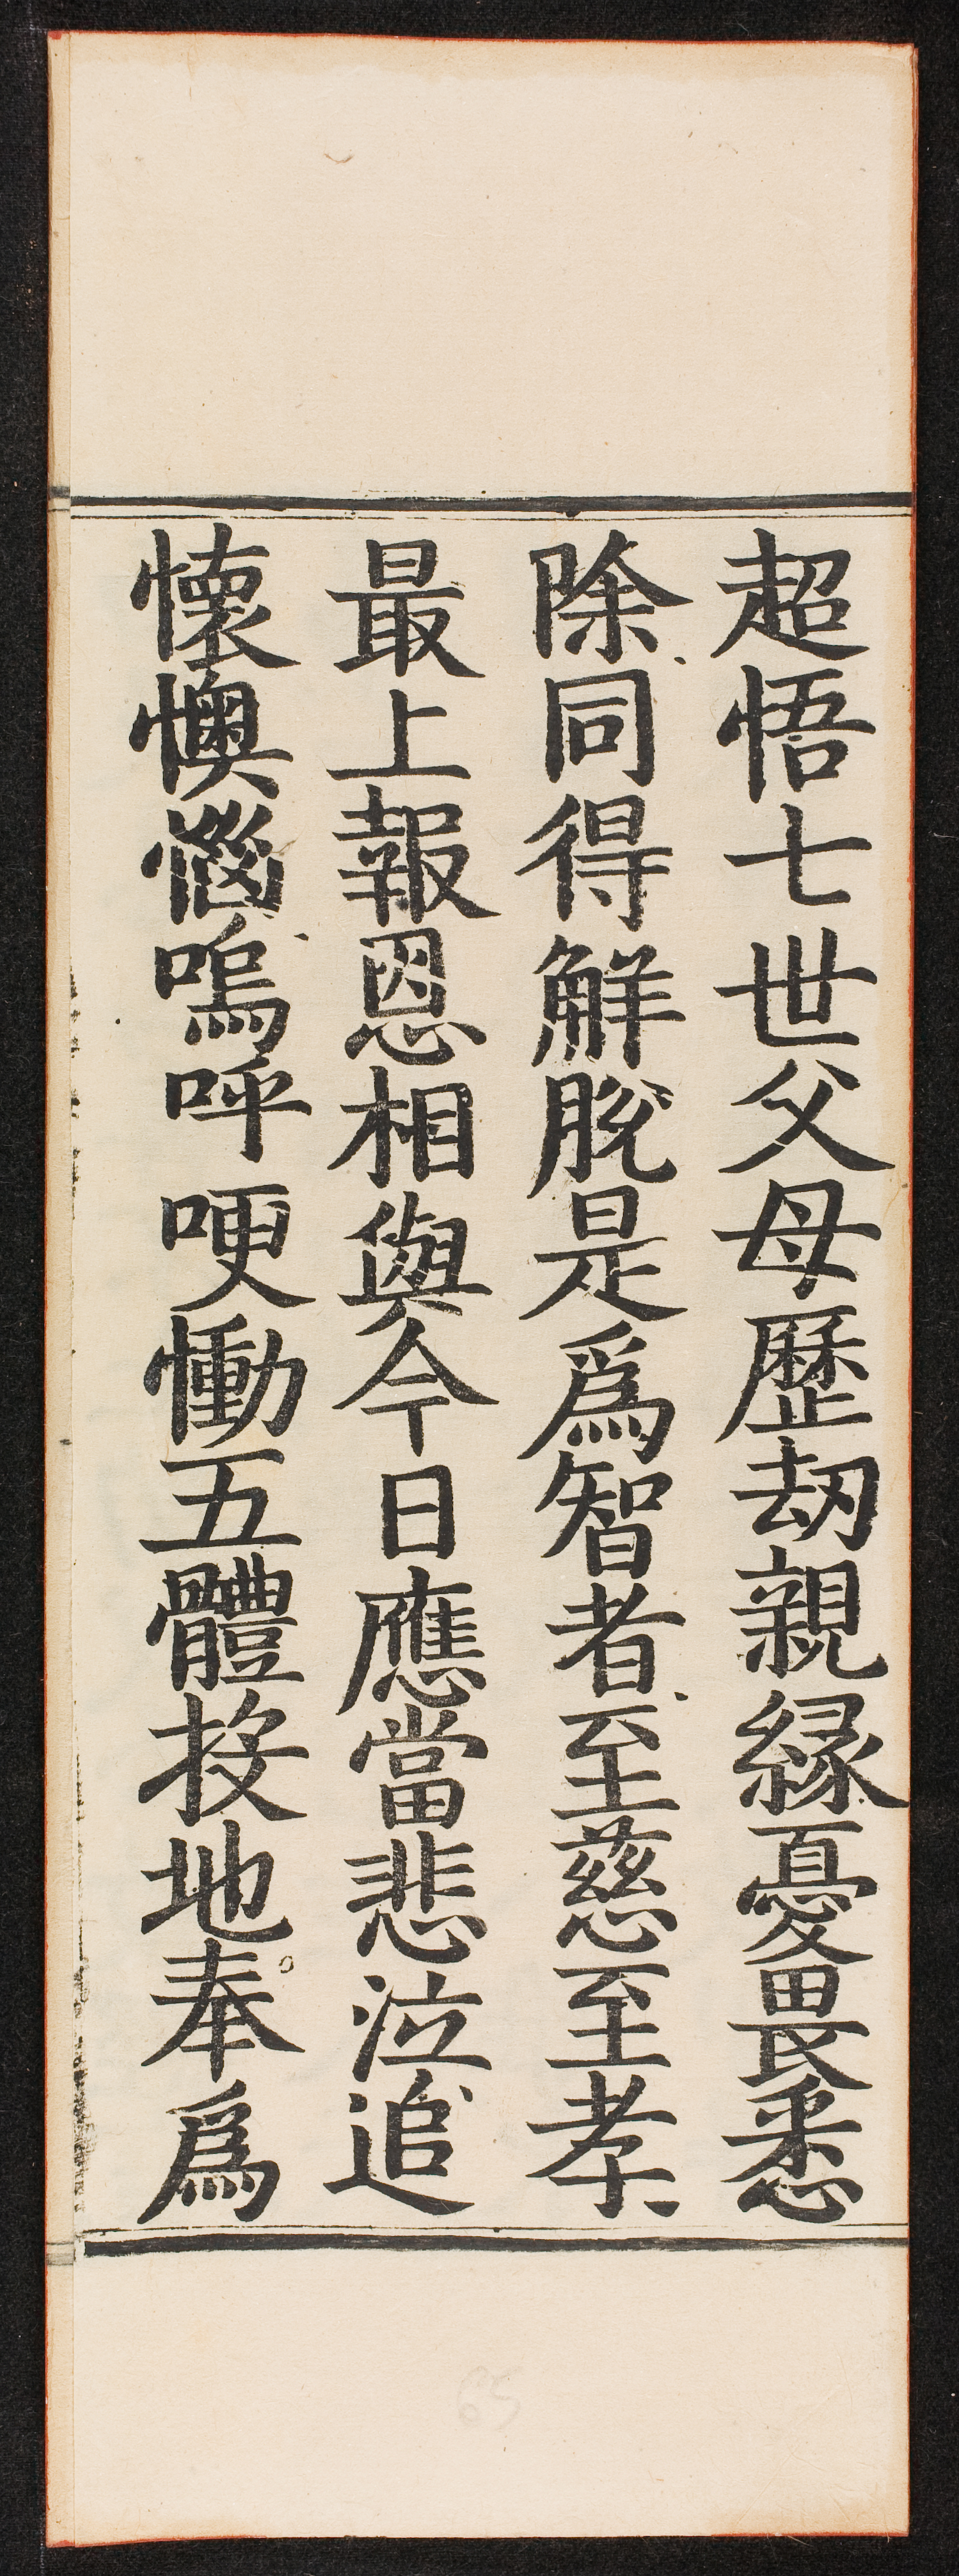 超悟七世父母歷劫親緣憂畏悉
除同得解脫是爲智者至慈至孝
最上報恩相與今日應當悲泣追
懷懊惱嗚呼哽慟五體投地奉爲
65